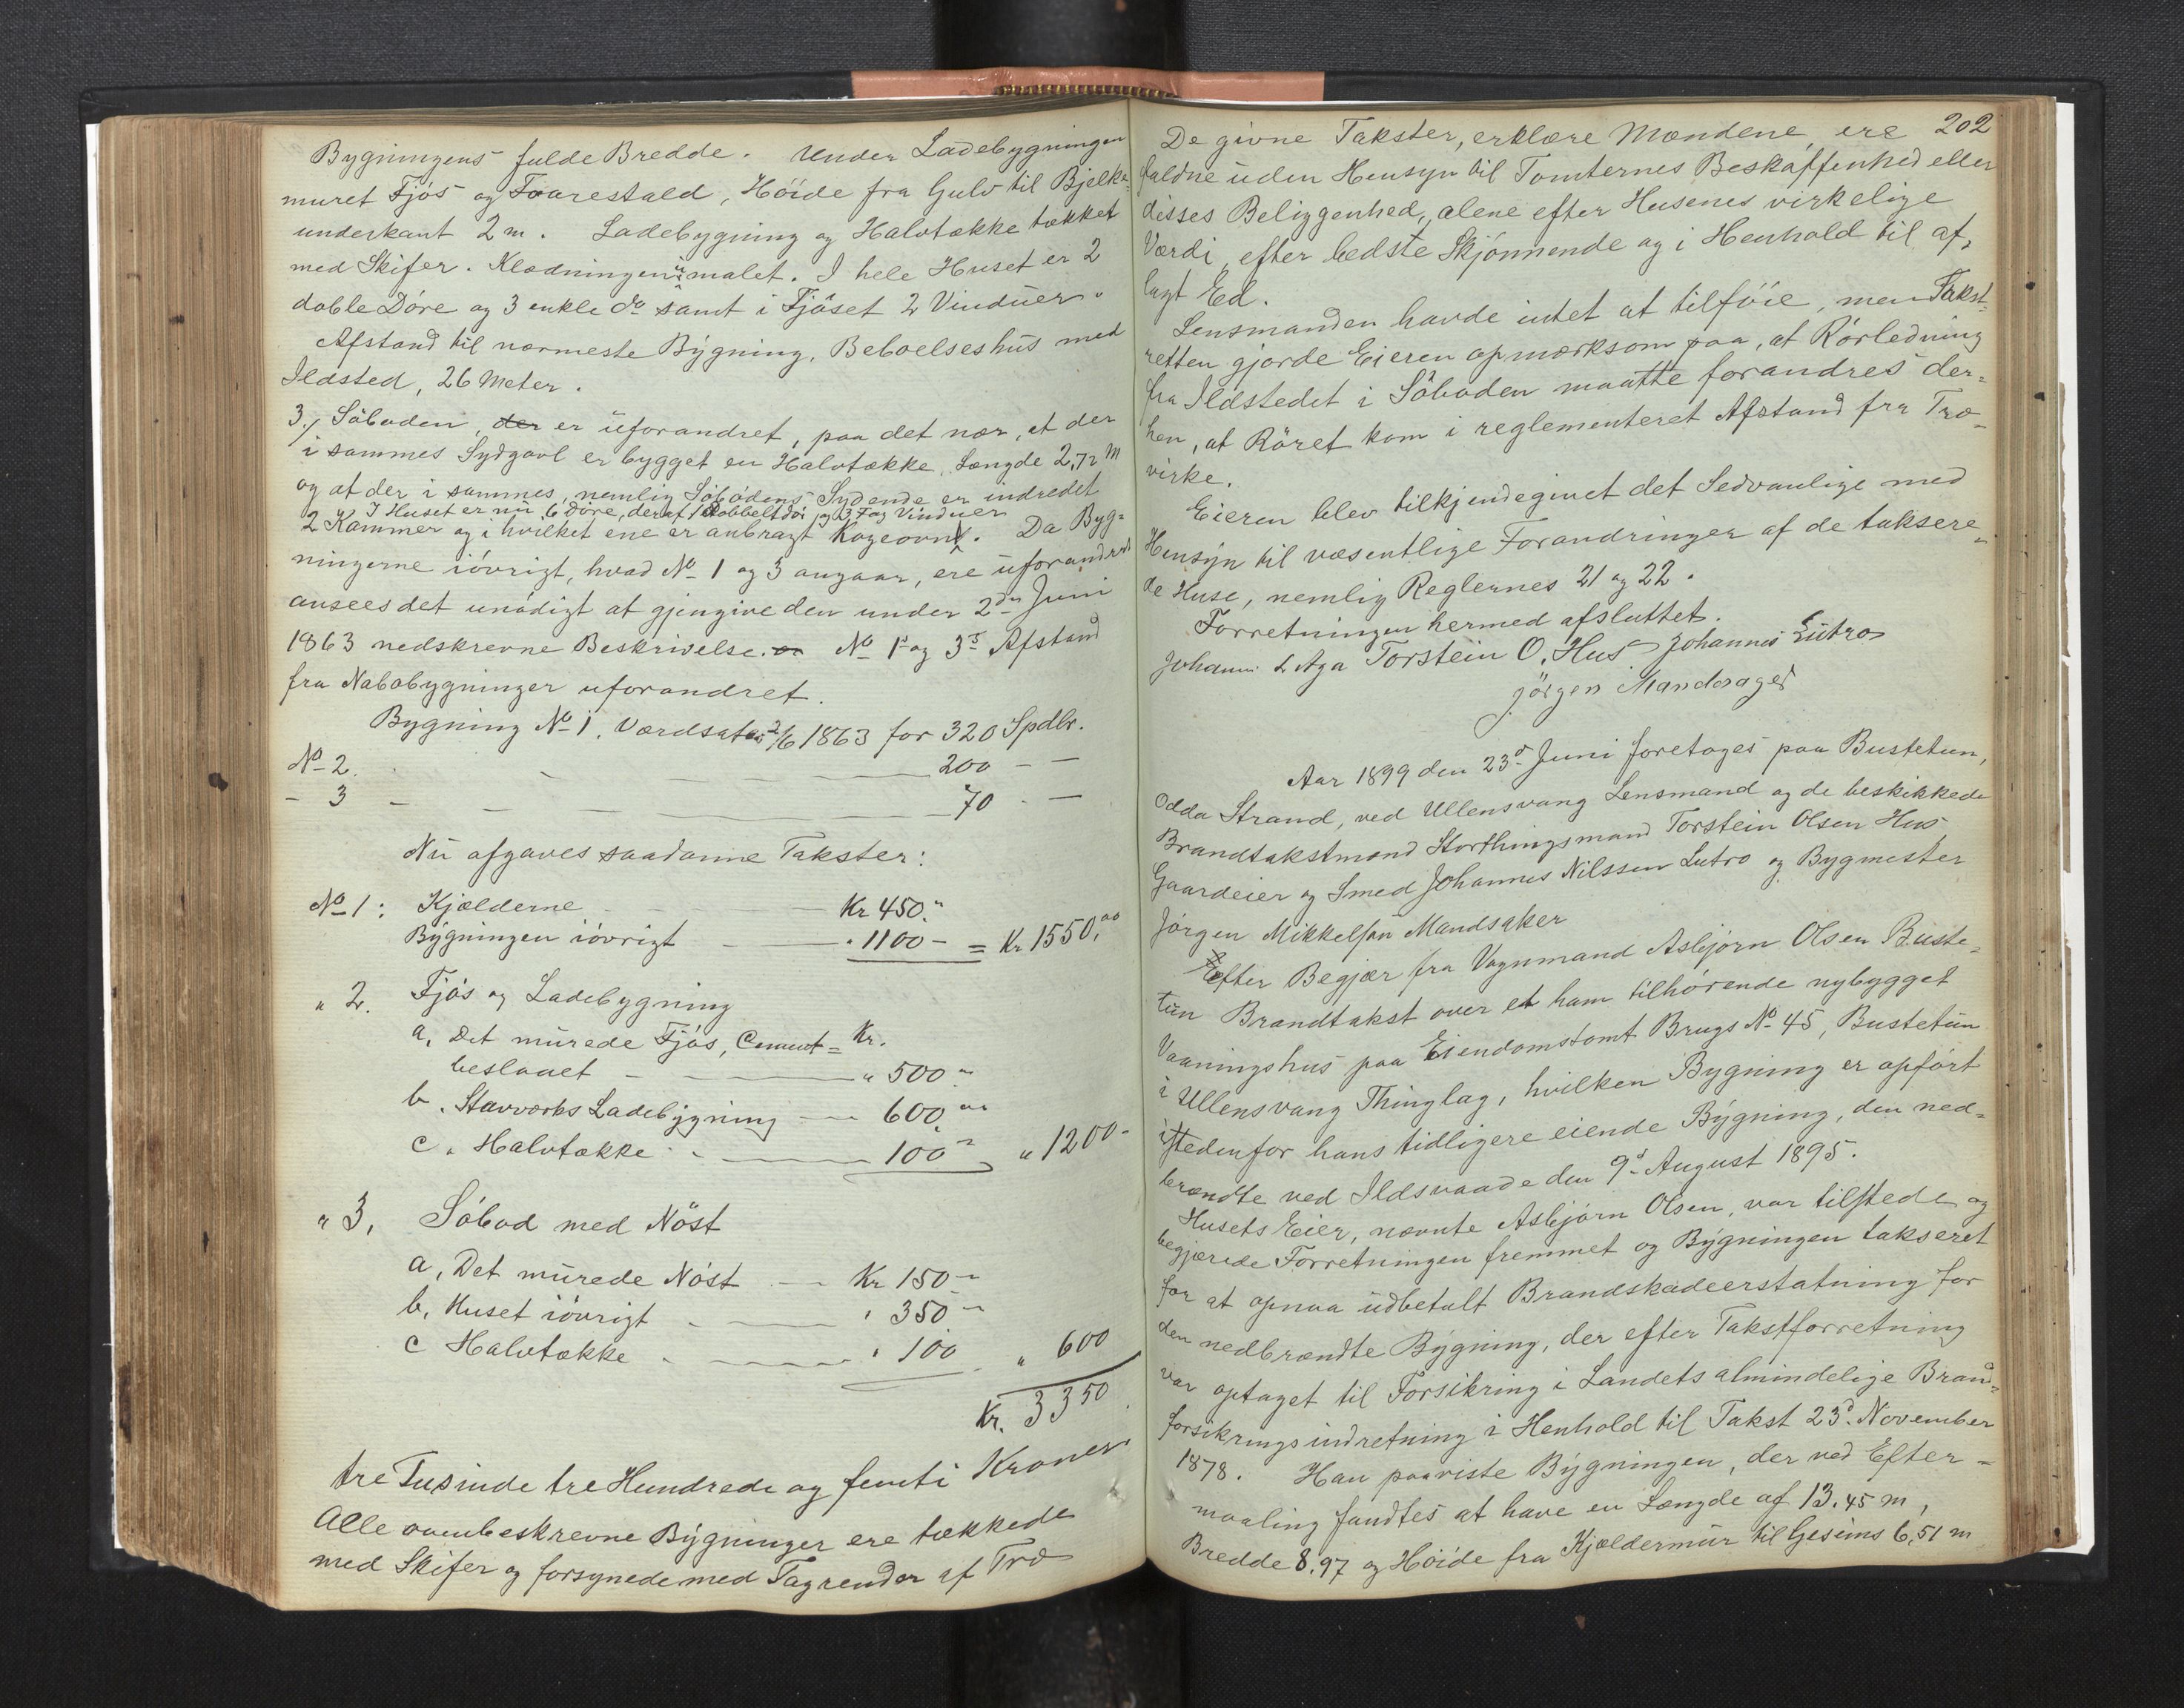 Bygningens fulde Bredde. Under Ladebygningen
muret Fjøs og Faarestald, Høide fra Gulv til Bjelke-
underkant 2 m. Ladebygning og Halvtække tækket
med Skifer. Klædningen er malet. I hele Huset er 2
doble Døre og 3 enkle do samt i Fjøset 2 Vinduer.
Afstand til nærmeste Bygning, Beboelseshus med
Ildsted, 26 Meter.
3, Søboden, der er uforandret, paa det nær, at der
i sammes Sydgavl er bygget en Halvtække, Længde 2,72 M
og at der i sammes, nemlig Søbodens Sydende er indredet
I Huset er nu 6 Døre, deraf 1 Dobbeltdør og 3 Fag Vinduer
2 Kammer og i hvilket ene er anbragt Kogeovn. Da Byg-
ningerne iøvrigt, hvad No 1 og 3 angaar, ere uforandret
ansees det unødigt at gjengive den under 2den Juni
1863 nedskrevne Beskrivelse. No 1s og 3s Afstand
fra Nabobygninger uforandret.
Bygning No 1. Værdsat 2/6 1863 for 320 Spdlr.
No 2. — — 200 — —
- 3 — — — 70 - —
Nu afgaves saadanne Takster:
No 1: Kjælderne — Kr 450."
Bygningen iøvrigt — " 1100 - = Kr 1550,00
" 2. Fjøs og Ladebygning
a, Det murede Fjøs, Cement= Kr.
beslaaet — " 500 "
b. Stavværks Ladebygning — 600,00
c. Halvtække — 100 " " 1200 -
" 3, Søbod med Nøst
a, Det murede Nøst — Kr 150 "
b, Huset iøvrigt — " 350 "
c Halvtække — " 100 " 600
Kr. 3350
tre Tusinde tre Hundrede og femti Kroner
Alle ovenbeskrevne Bygninger ere tækkede
med Skifer og forsynede med Tagrender af Træ
202
De givne Takster, erklære Mændene, ere
faldne uden Hensyn til Tomternes Beskaffenhed eller
disses Beliggenhed, alene efter Husenes virkelige
Værdi, efter bedste Skjønnende og i Henhold til af-
lagt Ed.
Lensmanden havde intet at tilføie, men Takst-
retten gjorde Eieren opmærksom paa, at Rørledning
fra Ildstedet i Søboden maatte forandres der-
hen, at Røret kom i reglementeret Afstand fra Træ-
virke.
Eieren blev tilkjendegivet det Sedvanlige med
Hensyn til væsentlige Forandringer af de taksere-
de Huse, nemlig Reglernes 21 og 22.
Forretningen hermed afsluttet.
Johann. L Aga Torstein O. Hus Johannes Lutro
Jörgen Mandsager
Aar 1899 den 23de Juni foretoges paa Bustetun,
Odda Strand, ved Ullensvang Lensmand og de beskikkede
Brandtakstmænd Storthingsmand Torstein Olsen Hus,
Gaardeier og Smed Johannes Nilssen Lutro og Bygmester
Jørgen Mikkelsen Mandsaker
Efter Begjær fra Vognmand Asbjørn Olsen Buste-
tun Brandtakst over et ham tilhørende nybygget
Vaaningshus paa Eiendomstomt Brugs No 45, Bustetun
i Ullensvang Thinglag, hvilken Bygning er opført
istedenfor hans tidligere eiende Bygning, den ned-
brændte ved Ildsvaade den 9de August 1895.
Husets Eier, nævnte Asbjørn Olsen, var tilstede og
begjærede Forretningen fremmet og Bygningen takseret
for at opnaa udbetalt Brandskadeerstatning for
den nedbrændte Bygning, der efter Takstforretning
var optaget til Forsikring i Landets almindelige Brand-
forsikringsindretning i Henhold til Takst 23de November
1878. Han paaviste Bygningen, der ved Efter-
maaling fandtes at have en Længde af 13.45 m,
Bredde 8.97 og Høide fra Kjældermur til Gesims 6,51 m